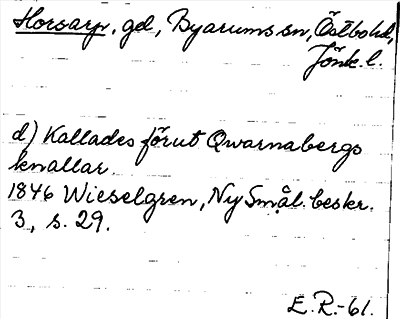 Horsarp. gd, Byarums sn, Östbo hd,
Jönk. l.
d) Kallades förut Qwarnabergs
knallar
1846 Wieselgren, Ny Smål. beskr.
3, s. 29.
E.R.-61.